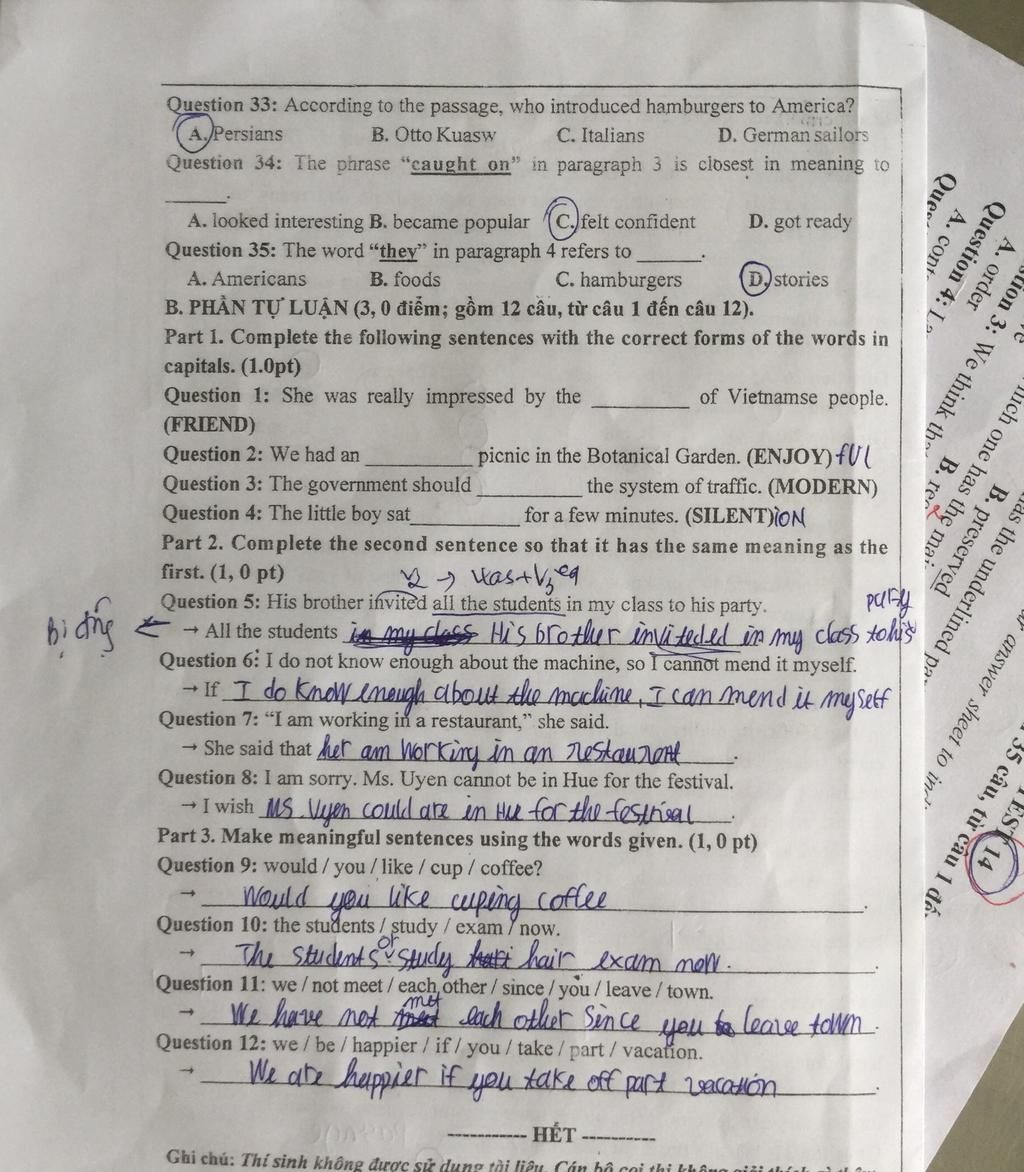 Question 33: According to the passage, who introduced hamburgers to America?
A. Persians B. Otto Kuasw C. Italians D. German sailors
Question 34: The phrase “caught on” in paragraph 3 is closest in meaning to
______.
A. looked interesting B. became popular C. felt confident D. got ready
Question 35: The word “they” in paragraph 4 refers to ______.
A. Americans B. foods C. hamburgers D. stories
B. PHẦN TỰ LUẬN (3, 0 điểm; gồm 12 câu, từ câu 1 đến câu 12).
Part 1. Complete the following sentences with the correct forms of the words in
capitals. (1.0pt)
Question 1: She was really impressed by the _________ of Vietnamse people.
(FRIEND)
Question 2: We had an __________ picnic in the Botanical Garden. (ENJOY) fUl
Question 3: The government should _________ the system of traffic. (MODERN)
Question 4: The little boy sat__________ for a few minutes. (SILENT)iON
Part 2. Complete the second sentence so that it has the same meaning as the
first. (1, 0 pt)
V2 → Was+V3 ed
Question 5: His brother invited all the students in my class to his party.
party
Bị động ← → All the students in my class His brother inviteded in my class to his
Question 6: I do not know enough about the machine, so I cannot mend it myself.
→ If I do know enough about the machine, I can mend it myself
Question 7: “I am working in a restaurant,” she said.
→ She said that her am working in an restaurent.
Question 8: I am sorry. Ms. Uyen cannot be in Hue for the festival.
→ I wish MS. Uyen could are in Hue for the festival.
Part 3. Make meaningful sentences using the words given. (1, 0 pt)
Question 9: would / you / like / cup / coffee?
→ Would you like cuping coffee.
Question 10: the students / study / exam / now.
→ The students or study hair exam now.
Question 11: we / not meet / each other / since / you / leave / town.
→ We have not met each other since you leave town.
Question 12: we / be / happier / if / you / take / part / vacation.
→ We are happier if you take off part vacation.
----------- HẾT -----------
Ghi chú: Thí sinh không được sử dụng tài liệu. Cán bộ coi thi không giải thích gì
TEST 14
35 câu, từ câu 1 đế
answer sheet to in
has the underlined
B. preserved
which one has the mai
Question 3: We think th
A. order B. re
Question 4: I
A. con